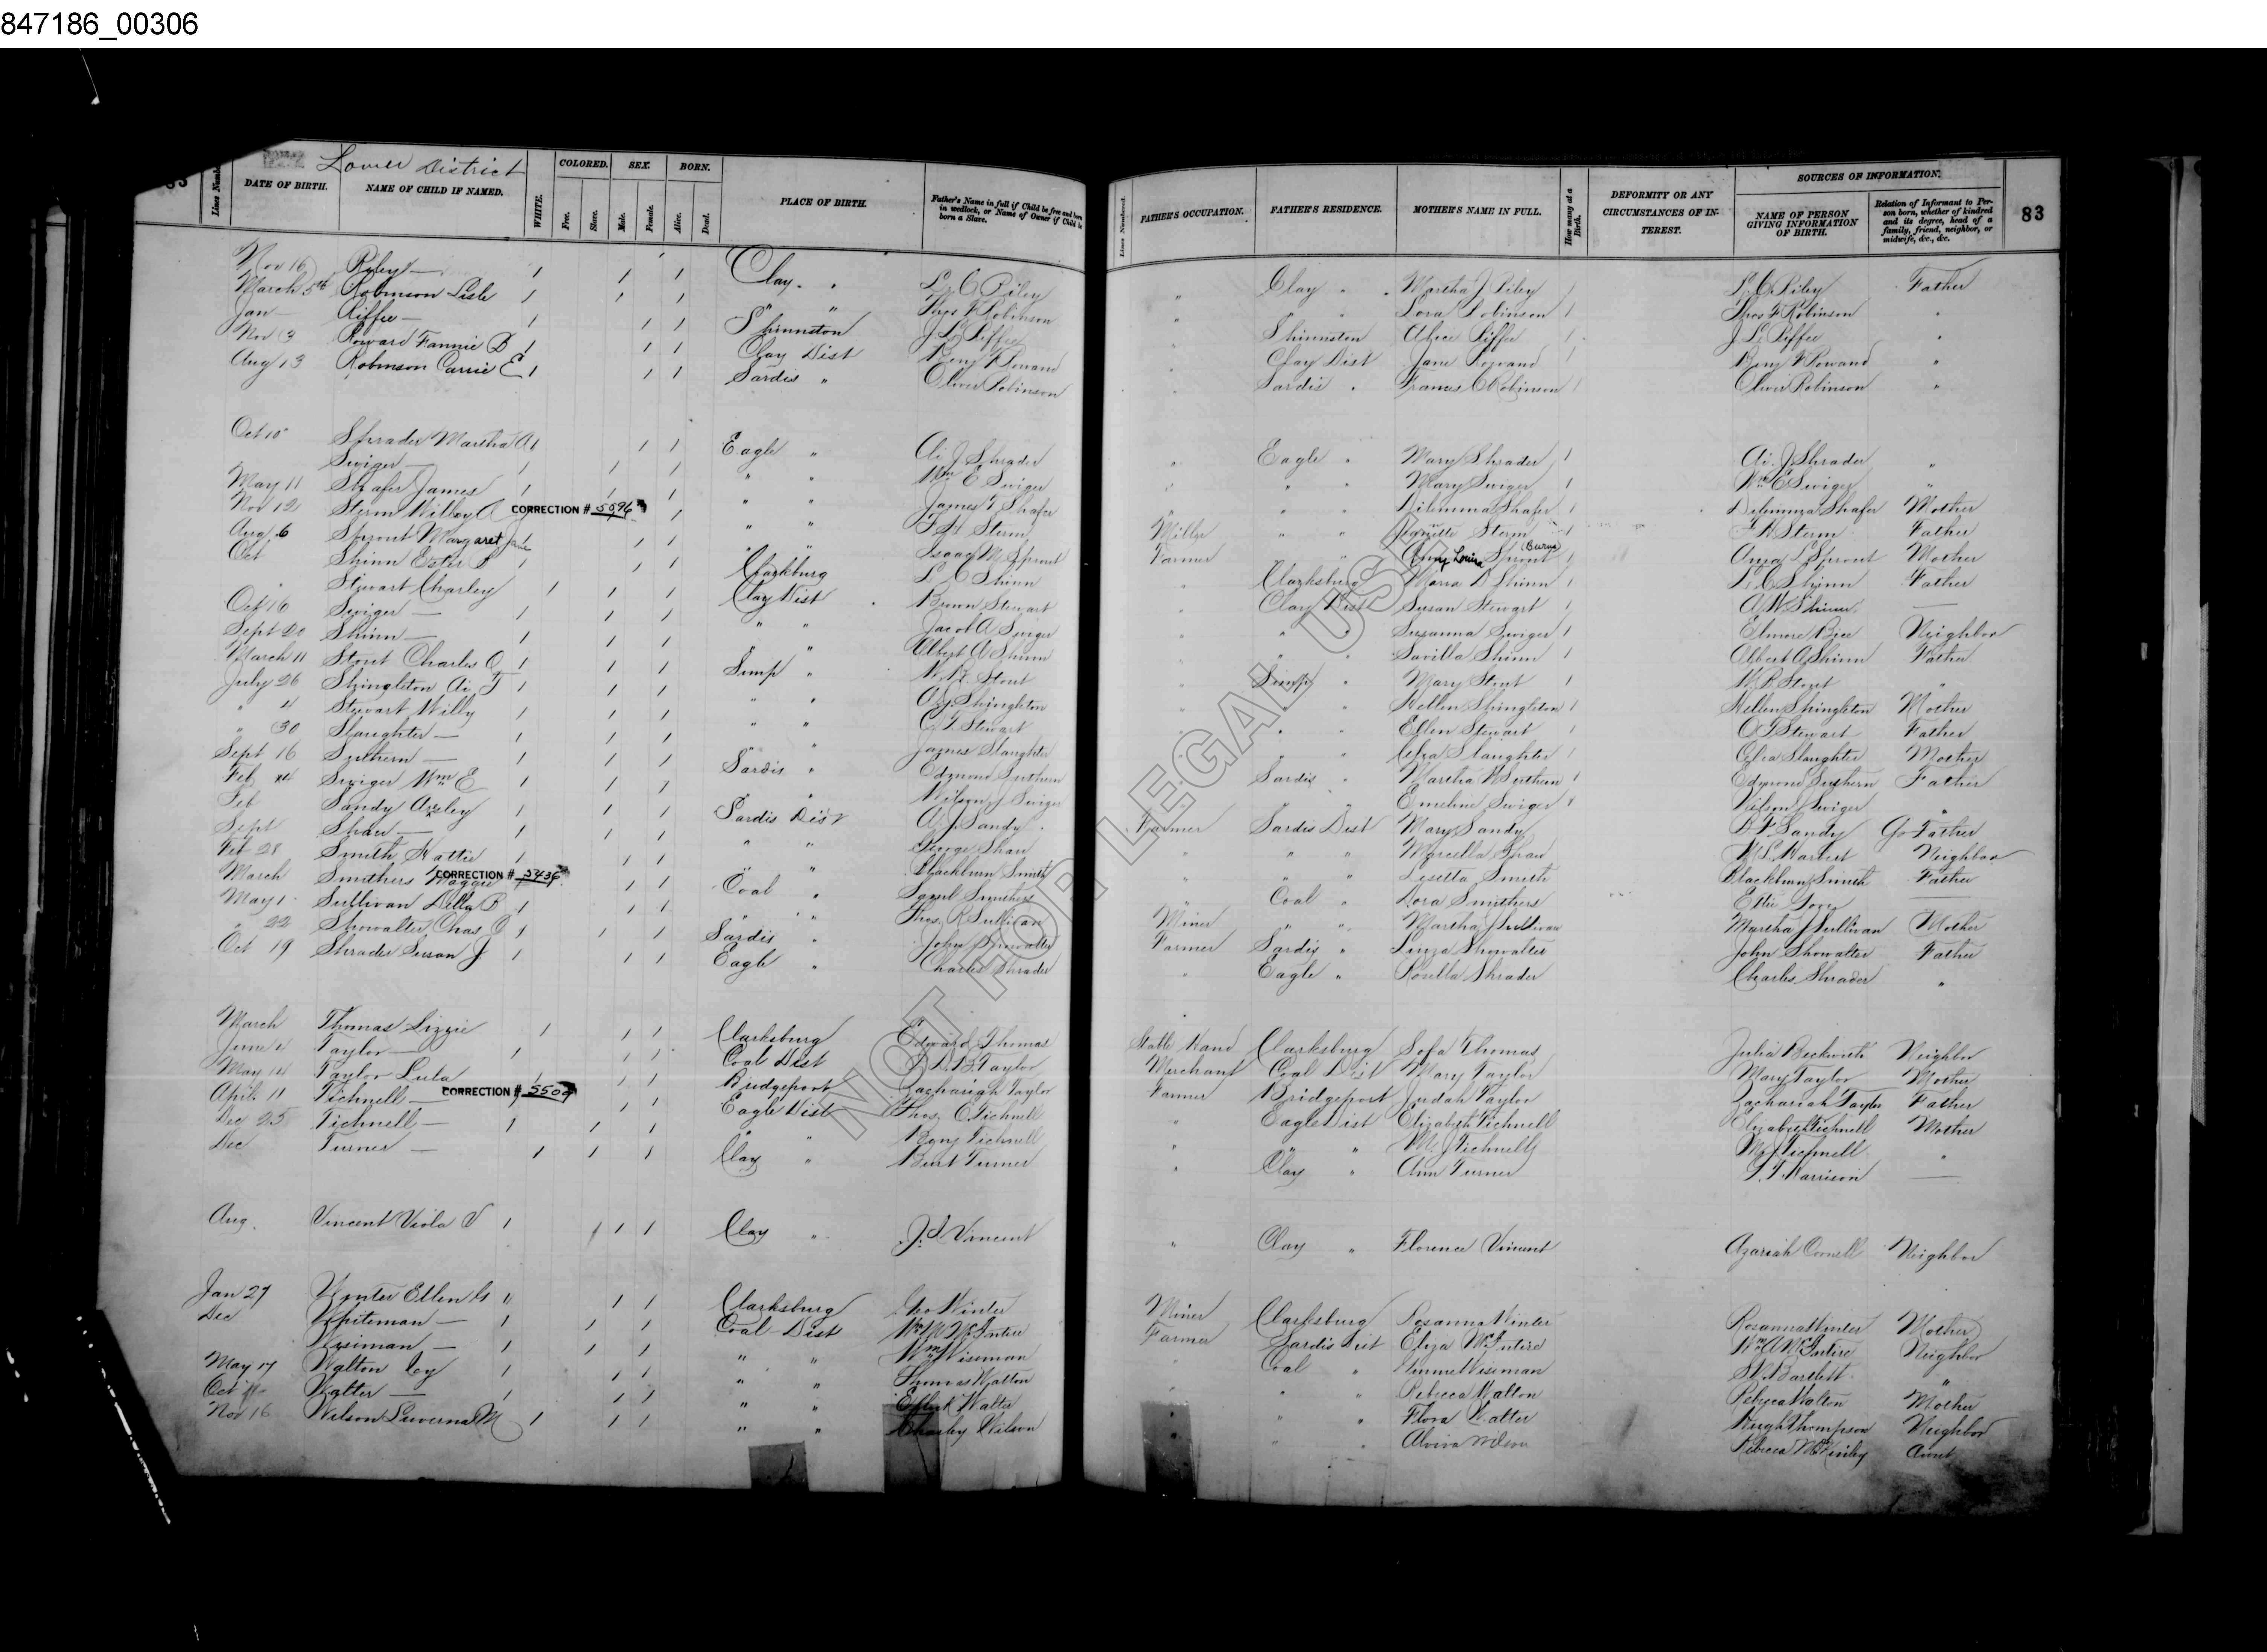 847186_00306
Lower District
83
Lines Numbered
DATE OF BIRTH.
NAME OF CHILD IF NAMED.
WHITE.
COLORED.
Free.
Slave.
SEX.
Male.
Female.
BORN.
Alive.
Dead.
PLACE OF BIRTH.
Father's Name in full if Child be free and born in wedlock, or Name of Owner if Child be born a Slave.
Lines Numbered.
FATHER'S OCCUPATION.
FATHER'S RESIDENCE.
MOTHER'S NAME IN FULL.
How many at a Birth.
DEFORMITY OR ANY CIRCUMSTANCES OF INTEREST.
SOURCES OF INFORMATION.
NAME OF PERSON GIVING INFORMATION OF BIRTH.
Relation of Informant to Person born, whether of kindred and its degree, head of a family, friend, neighbor, or midwife, &c., &c.
83
Nov 16 Riley — 1 1 1 Clay " L C Riley " Clay " Martha J Riley 1 L C Riley Father
March 5th Robinson Lisle 1 1 1 " " Thos F Robinson " " " Lora Robinson 1 Thos F Robinson "
Jan — Riffee — 1 1 1 Shinnston J L Riffee " Shinnston Alice Riffee 1 J L Riffee "
Nov 3 Rowand Fannie B 1 1 1 Clay Dist Benj F Rowand " Clay Dist Jane Rowand 1 Benj F Rowand "
Aug 13 Robinson Carrie E 1 1 1 Sardis " Oliver Robinson " Sardis " Frances C Robinson 1 Oliver Robinson "
Oct 10 Shrader Martha A 1 1 1 Eagle " Ai J Shrader " Eagle " Mary Shrader 1 Ai J Shrader "
Swiger — 1 1 1 " " Wm E Swiger " " " Mary Swiger 1 Wm E Swiger "
May 11 Shafer James 1 1 1 " " James T Shafer " " " Shafer 1 Shafer Mother
Nov 12 Sterm Wilbey A CORRECTION # 5596 1 " " F H Sterm Miller " " Sterm 1 F H Sterm Father
Aug 6 Sprout Margaret Jane 1 1 1 " " Isaac M Sprout Farmer " " Amy Louisa Sprout (Burns) 1 Amy L Sprout Mother
Oct Shinn Ester 1 1 1 Clarksburg L C Shinn " Clarksburg Maria D Shinn 1 L C Shinn Father
" Stewart Charley 1 1 1 Clay Dist Brown Stewart " Clay Dist Susan Stewart 1 A W Shinn —
Oct 16 Swiger — 1 1 1 " " Jacob A Swiger " " " Susanna Swiger 1 Elmore Bice Neighbor
Sept 20 Shinn — 1 1 1 " " Albert A Shinn " " " Savilla Shinn 1 Albert A Shinn Father
March 11 Stout Charles O 1 1 1 Simp " Stout " Simp " Mary Stout 1 Stout "
July 26 Shingleton Ai J 1 1 1 " " A J Shingleton " " " Hellen Shingleton 1 Hellen Shingleton Mother
" 4 Stewart Willy 1 1 1 " " C T Stewart " " " Ellen Stewart 1 C T Stewart Father
" 30 Slaughter — 1 1 1 " " James Slaughter " " " Celia Slaughter 1 Celia Slaughter Mother
Sept 16 Suthern — 1 1 1 Sardis " Edmond Suthern " Sardis " Martha Suthern 1 Edmond Suthern Father
Feb 14 Swiger Wm E 1 1 1 " " Wilson J Swiger " " " Emeline Swiger 1 Wilson J Swiger "
Feb Sandy Arsley 1 1 1 Sardis Dist A J Sandy Farmer Sardis Dist Mary Sandy D F Sandy G Father
Sept Shaw — 1 1 1 " " George Shaw " " " Marcella Shaw Harbert Neighbor
Feb 28 Smith Hattie 1 1 1 " " Blackburn Smith " " " Losetta Smith Blackburn Smith Father
March Smithers Maggie CORRECTION # 5436 1 1 Coal " Saml Smithers " Coal " Dora Smithers Ettie —
May 1 Sullivan Della B 1 1 1 " " Thos R Sullivan Miner " " Martha J Sullivan Martha J Sullivan Mother
" 22 Showalter Chas O 1 1 1 Sardis " John Showalter Farmer Sardis " Showalter John Showalter Father
Oct 19 Shrader Susan J 1 1 1 Eagle " Charles Shrader " Eagle " Rosella Shrader Charles Shrader "
March Thomas Lizzie 1 1 1 Clarksburg Edward Thomas Stable Hand Clarksburg Sofa Thomas Julia Beckwith Neighbor
June 4 Taylor — 1 1 1 Coal Dist Taylor Merchant Coal Dist Mary Taylor Mary Taylor Mother
May 14 Taylor Lula 1 1 1 Bridgeport Zachariah Taylor Farmer Bridgeport Judah Taylor Zachariah Taylor Father
April 11 Tichnell — CORRECTION # 5509 1 1 Eagle Dist Thos C Tichnell " Eagle Dist Elizabeth Tichnell Elizabeth Tichnell Mother
Dec 25 Tichnell — 1 1 1 " " Benj Tichnell " " " M J Tichnell M J Tichnell "
Dec Turner — 1 1 1 Clay " Burt Turner " Clay " Ann Turner Harrison —
Aug. Vincent Viola V 1 1 1 Clay " J S Vincent " Clay " Florence Vincent Azariah Cornell Neighbor
Jan 27 Winter Ellen G 1 1 1 Clarksburg Geo Winter Miner Clarksburg Rosanna Winter Rosanna Winter Mother
Dec Whiteman — 1 1 1 Coal Dist McIntire Farmer Sardis Dist Eliza McIntire Wm A McIntire Neighbor
Wiseman — 1 1 1 " " Wm Wiseman " Coal " Wiseman Bartlett "
May 17 Walton 1 1 1 " " Thomas Walton " " " Rebecca Walton Rebecca Walton Mother
Oct Walter — 1 1 1 " " Walter " " " Flora Walter Hugh Thompson Neighbor
Nov 16 Wilson Luverna M 1 1 1 " " Charley Wilson " " " Alvira Wilson Rebecca McKinley Aunt
NOT FOR LEGAL USE